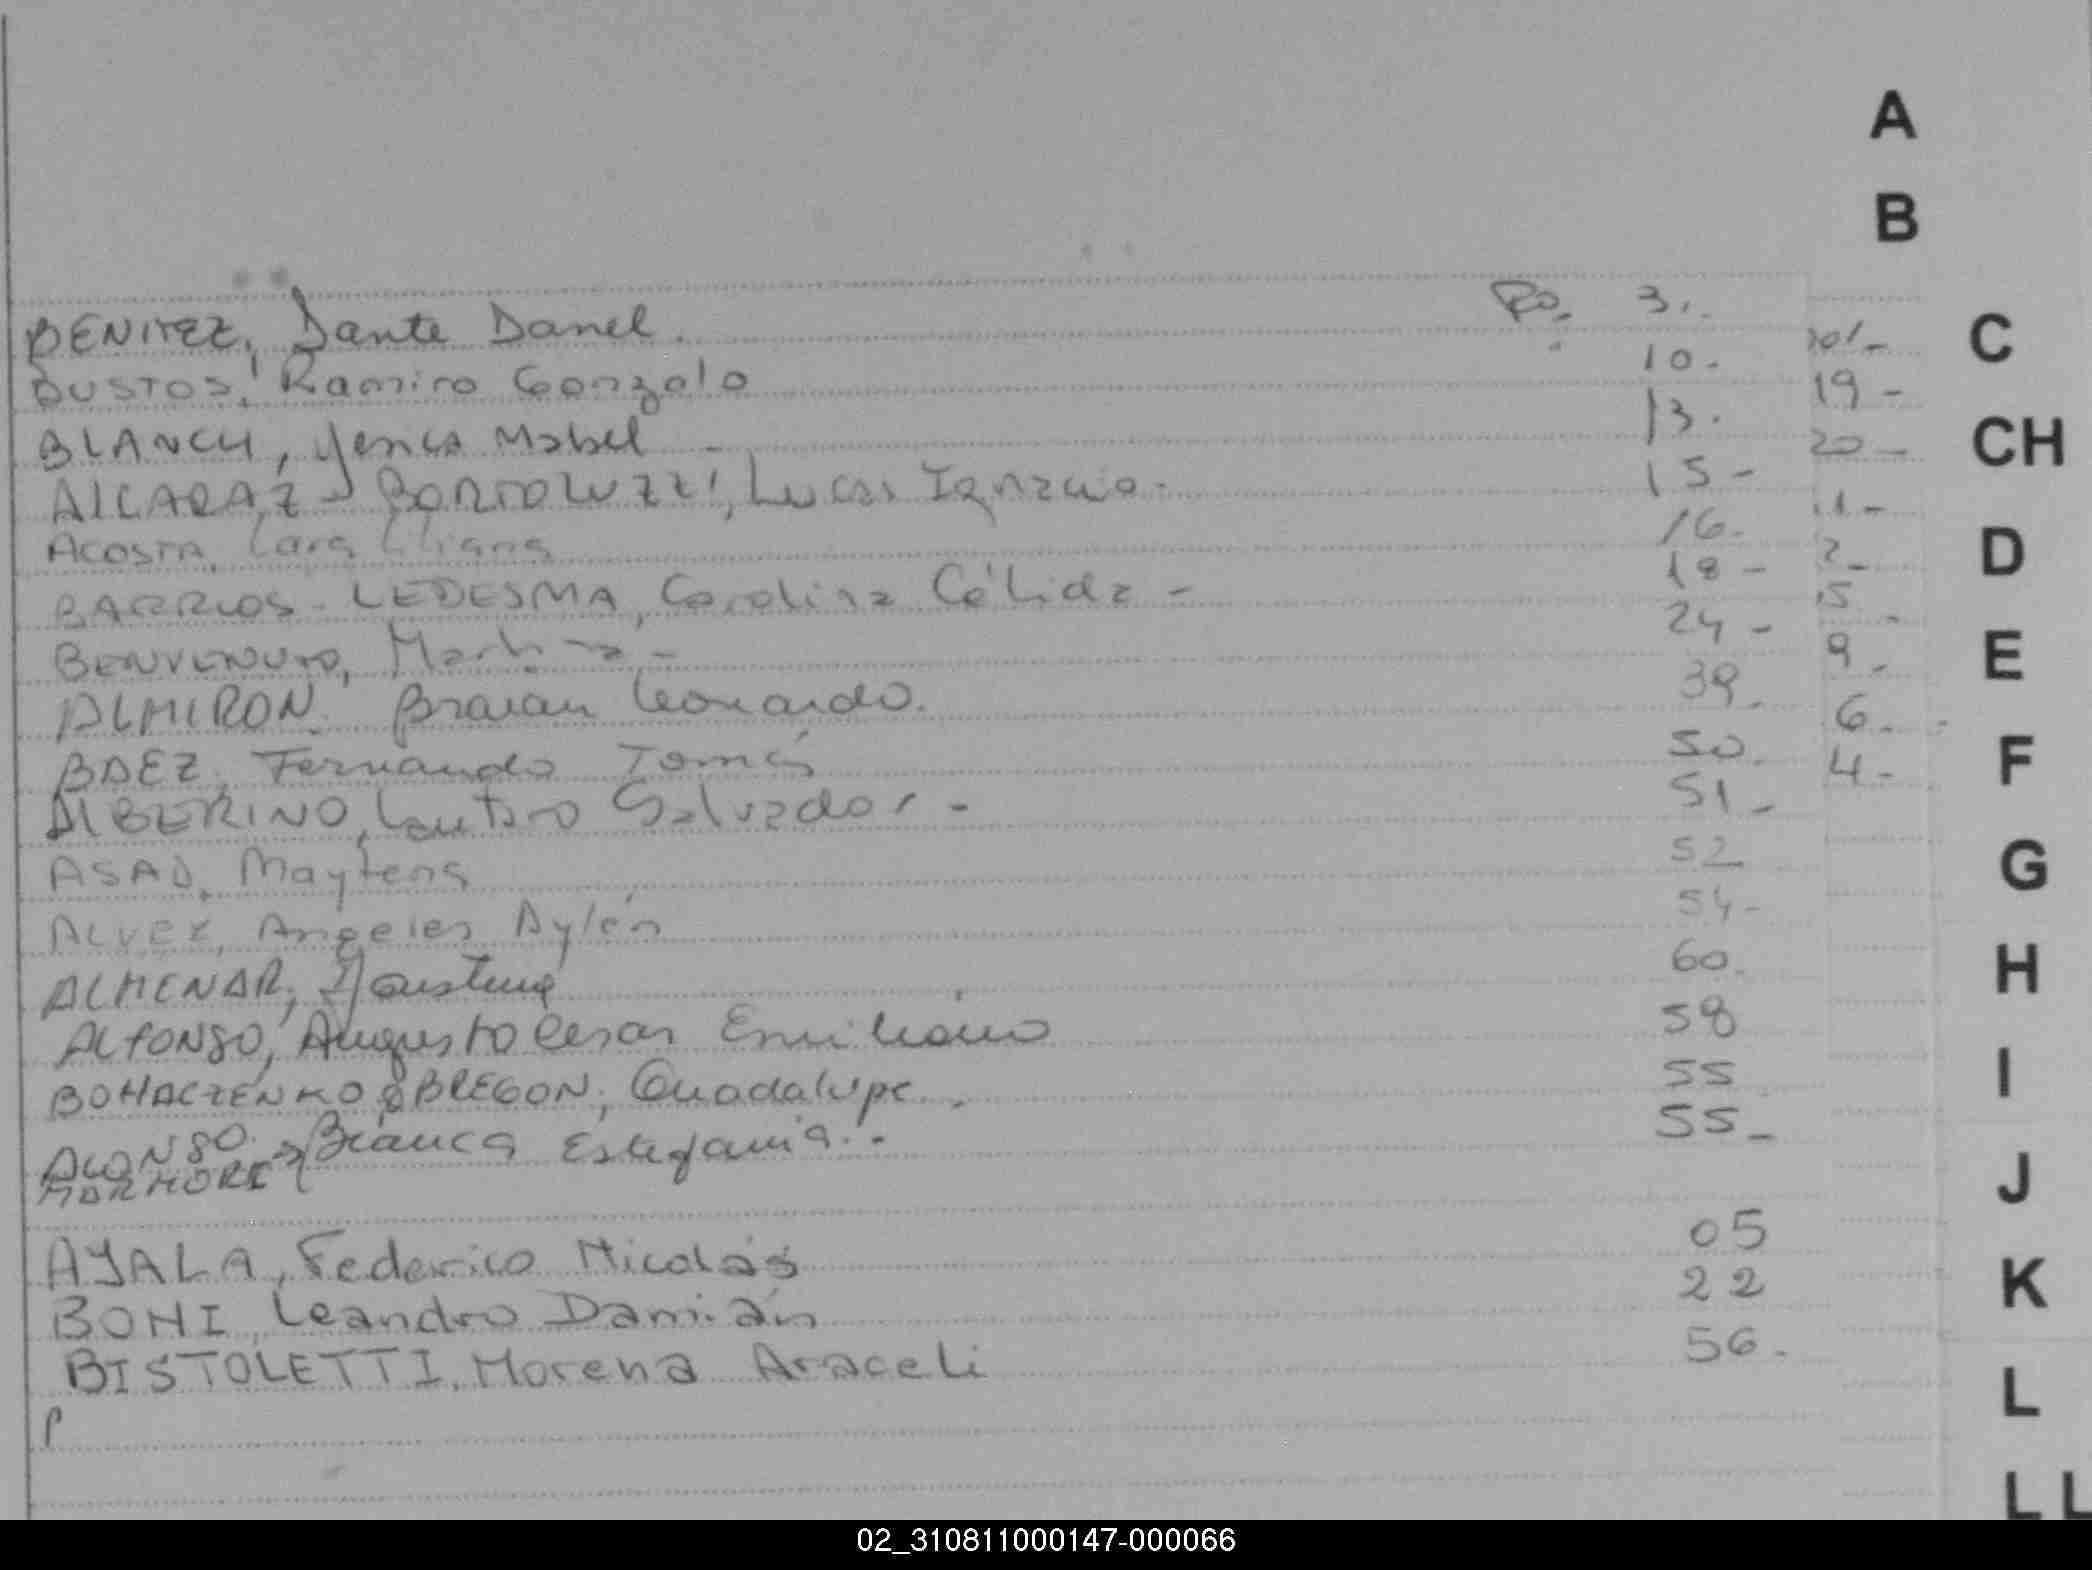 A
B
BENITEZ, Dante Daniel. Fo. 3.
BUSTOS, Ramiro Gonzalo 10.
BLANCH, Yesica Mabel 13.
ALCARAZ - BORTOLUZZI, Lucas Ignacio. 15 -
ACOSTA, Lara Eliana 16.
BARRIOS - LEDESMA, Carolina Célida - 18 -
BENVENUTO, Martina - 24 -
ALMIRON. Braian Leonardo. 39.
BAEZ, Fernando Tomás 50.
ALBERINO, Lautaro Salvador - 51 -
ASAD, Maytena 52
ALVEZ, Angeles Aylén 54 -
ALMENAR, Faustina 60.
ALFONSO, Augusto Cesar Emiliano 58
BOHACZENKO OBREGON, Guadalupe. 55
ALONSO MARMORE Bianca Estefania. 55 -
AYALA, Federico Nicolás 05
BONI, Leandro Damián 22
BISTOLETTI, Morena Araceli 56.
19 -
20 -
1 -
2 -
5 -
9 -
6 -
4 -
C
CH
D
E
F
G
H
I
J
K
L
LL
02_310811000147-000066